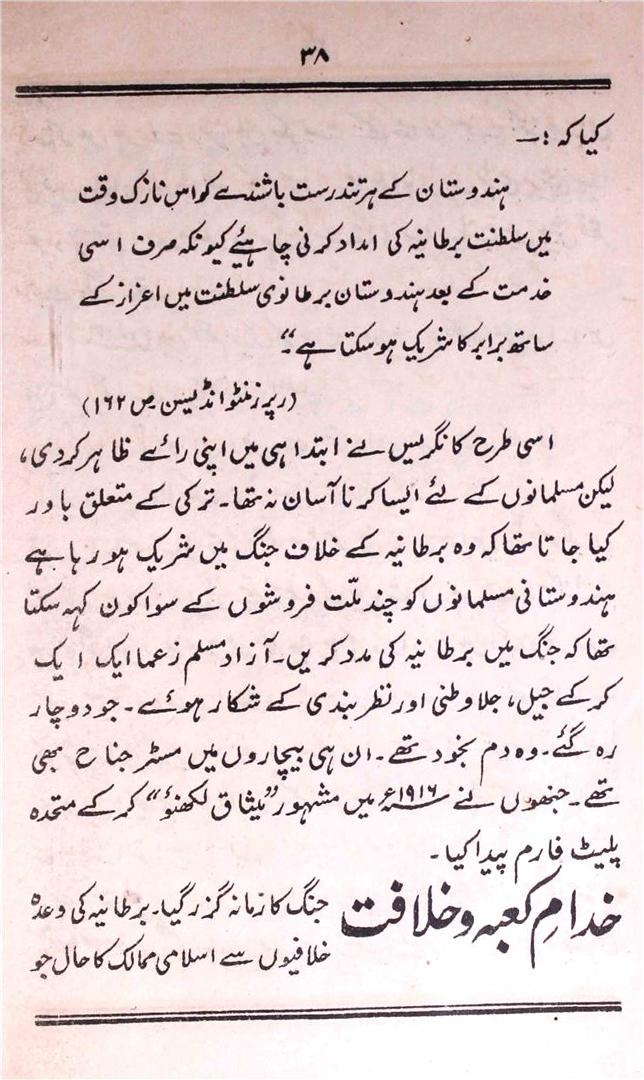 ۳۸
کیا کہ :—
ہندوستان کے ہر تندرست باشندے کو اس نازک وقت
میں سلطنت برطانیہ کی امداد کرنی چاہئیے کیونکہ صرف اسی
خدمت کے بعد ہندوستان برطانوی سلطنت میں اعزاز کے
ساتھ برابر کا شریک ہو سکتا ہے"۔
(ریپرزنٹو انڈیسن ص ۱۶۲)
اسی طرح کانگریس نے ابتدا ہی میں اپنی رائے ظاہر کردی،
لیکن مسلمانوں کے لئے ایسا کرنا آسان نہ تھا۔ ترکی کے متعلق باور
کیا جاتا تھا کہ وہ برطانیہ کے خلاف جنگ میں شریک ہو رہا ہے
ہندوستانی مسلمانوں کو چند ملّت فروشوں کے سوا کون کہہ سکتا
تھا کہ جنگ میں برطانیہ کی مدد کریں۔ آزاد مسلم زعما ایک ایک
کر کے جیل، جلاوطنی اور نظر بندی کے شکار ہوئے۔ جو دو چار
رہ گئے۔ وہ دم بخود تھے۔ ان ہی بیچاروں میں مسٹر جناح بھی
تھے۔ جنھوں نے ۱۹۱۶ء میں مشہور "میثاق لکھنؤ" کر کے متحدہ
پلیٹ فارم پیدا کیا۔
خدامِ کعبہ و خلافت جنگ کا زمانہ گزر گیا۔ برطانیہ کی وعدہ
خلافیوں سے اسلامی ممالک کا حال جو